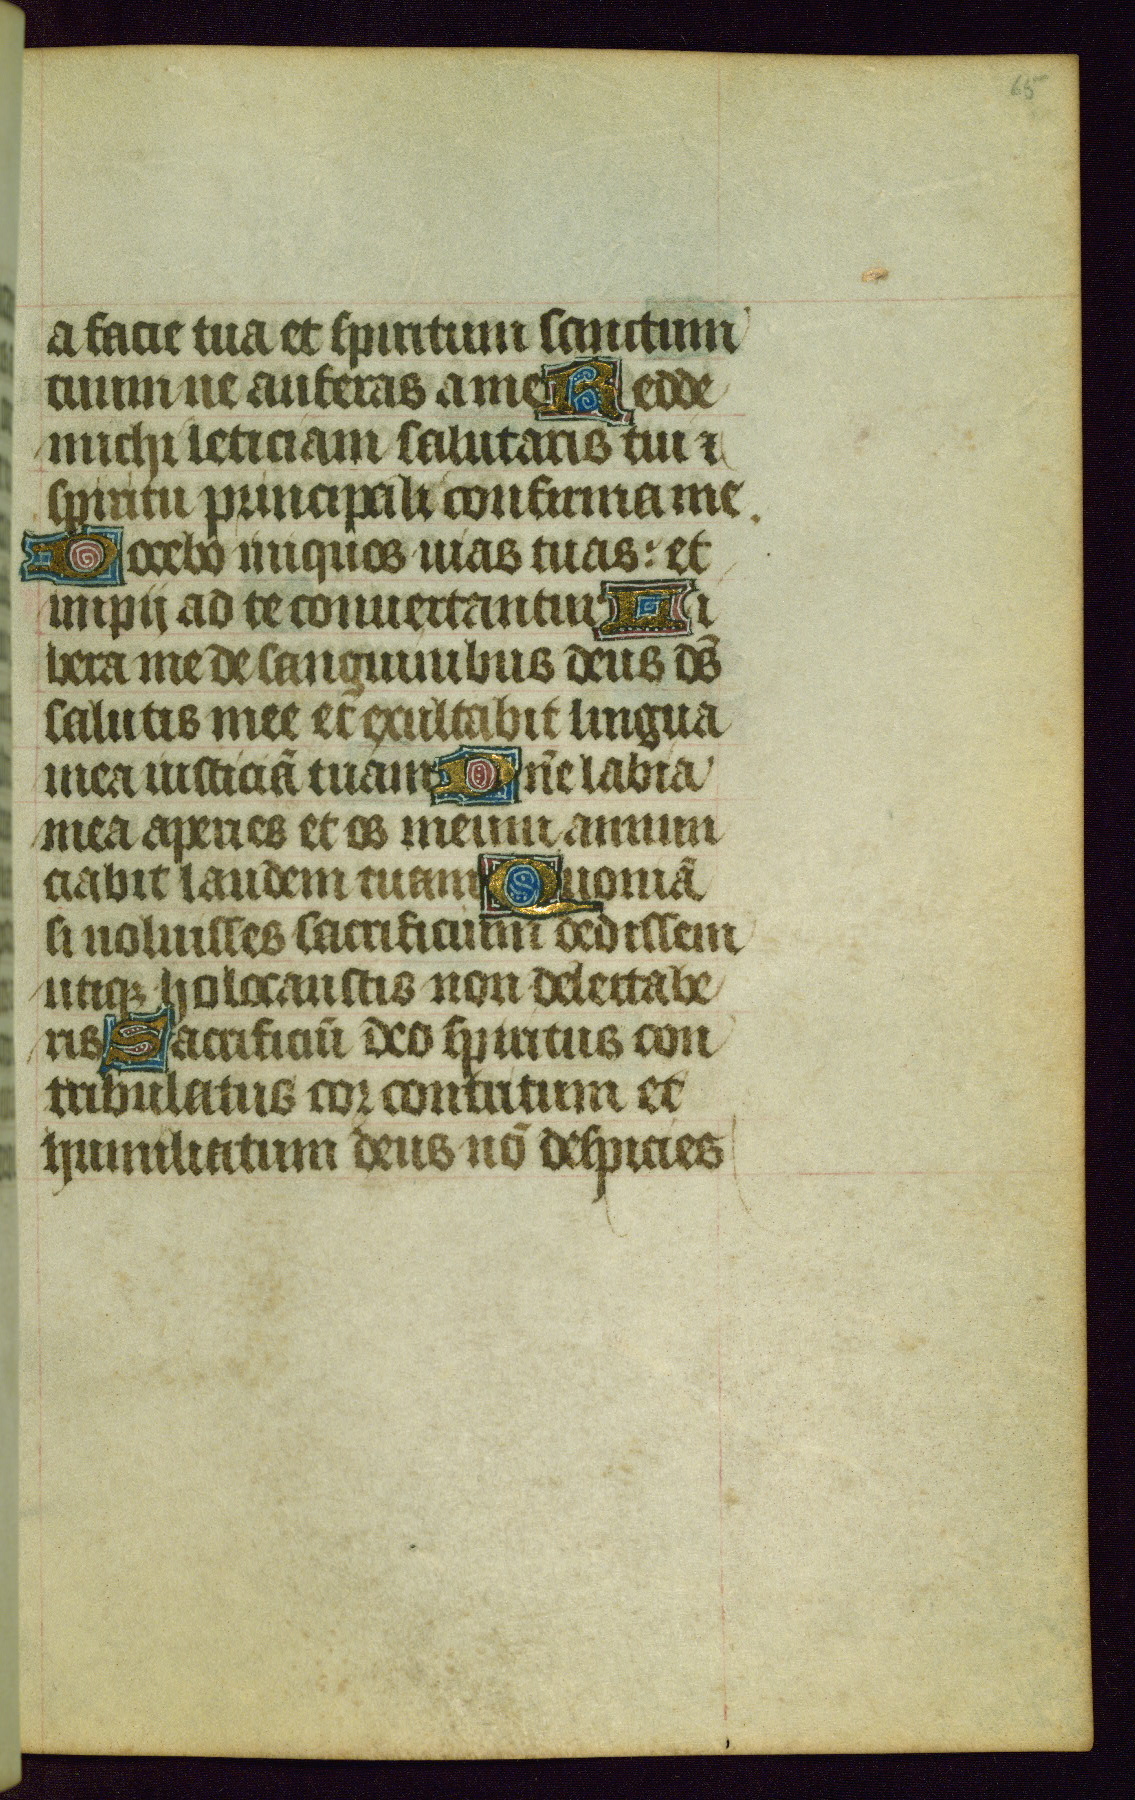 65
a facie tua et spiritum sanctum
tuum ne auferas a me Redde
michi leticiam salutaris tui ⁊
spiritu principali confirma me.
Docebo iniquos uias tuas: et
impij ad te conuertantur Li
bera me de sanguinibus deus ds̄
salutis mee et exultabit lingua
mea iusticiā tuam Dn̄e labia
mea aperies et os meum annun
ciabit laudem tuam Quoniā
si uoluisses sacrificium dedissem
utiqꝫ holocaustis non delectabe
ris Sacrificiū deo spiritus con
tribulatus cor contritum et
humiliatum deus nō despicies